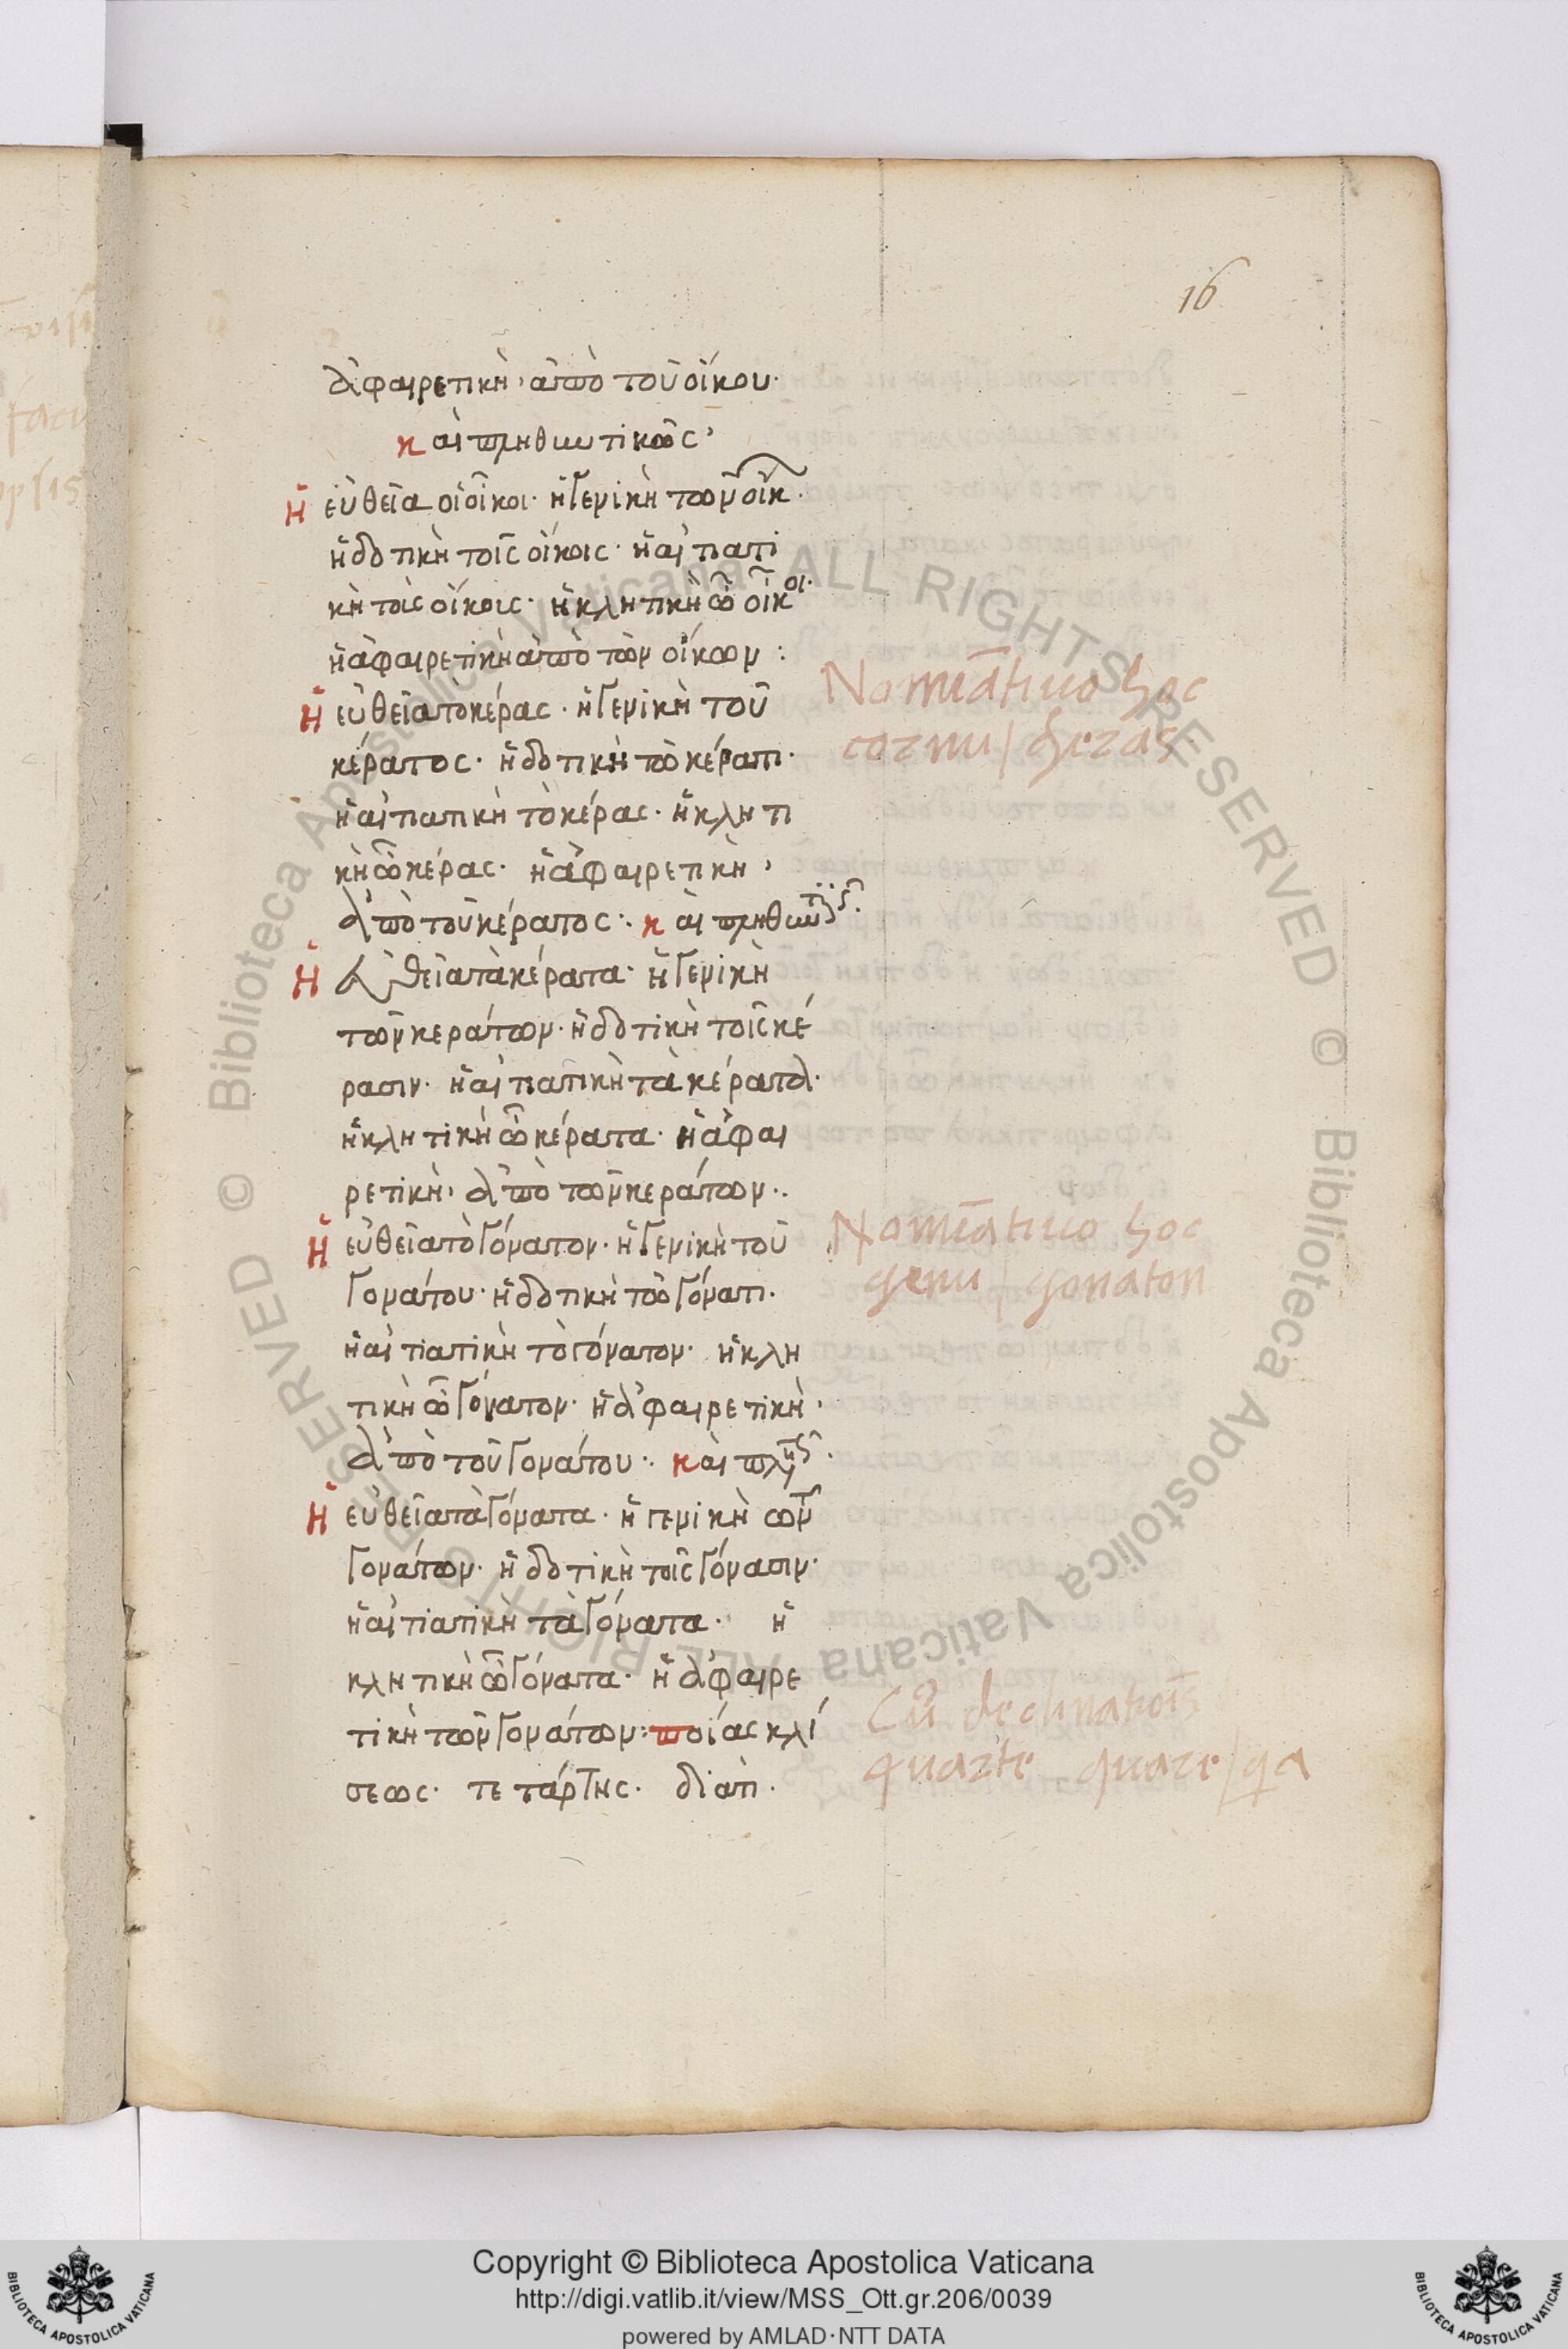 16
ἀφαιρετικὴ, ἀπὸ τοῦ οἴκου·
καὶ πληθυντικῶς,
Ἡ εὐθεῖα οἱ οἶκοι· ἡ γενικὴ τῶν οἴκ·
ἡ δοτικὴ τοῖς οἴκοις· ἡ αἰτιατι
κὴ τοὶς οἴκοις· ἡ κλητικὴ ὦ οἶκοι·
ἡ ἀφαιρετικὴ ἀπὸ τῶν οἴκων:
Ἡ εὐθεῖα τὸ κέρας· ἡ γενικὴ τοῦ
κέρατος· ἡ δοτικὴ τῶ κέρατι·
ἡ αἰτιατικὴ τὸ κέρας· ἡ κλητι
κὴ ὦ κέρας· ἡ ἀφαιρετικὴ,
ἀπὸ τοῦ κέρατος:· καὶ πληθυντικῶς·
Ἡ εὐθεῖα τὰ κέρατα· ἡ γενικὴ
τῶν κεράτων· ἡ δοτικὴ τοῖς κέ
ρασιν· ἡ αἰτιατικὴ τὰ κέρατα·
ἡ κλητικὴ ὦ κέρατα· ἡ ἀφαι
ρετικὴ, ἀπὸ τῶν κεράτων:·
Ἡ εὐθεῖα τὸ γόνατον· ἡ γενικὴ τοῦ
γονάτου· ἡ δοτικὴ τῶ γόνατι·
ἡ αἰτιατικὴ τὸ γόνατον· ἡ κλη
τικὴ ὦ γόνατον· ἡ ἀφαιρετικὴ,
ἀπὸ τοῦ γονάτου:· καὶ πλης·
Ἡ εὐθεῖα τὰ γόνατα· ἡ γενικὴ τῶν
γονάτων· ἡ δοτικὴ τοῖς γόνασιν·
ἡ αἰτιατικὴ τὰ γόνατα· ἡ
κλητικὴ ὦ γόνατα· ἡ ἀφαιρε
τικὴ τῶν γονάτων: ποίας κλί
σεως· τετάρτης· διατί·
Nomīatiuo hoc
cornu / cheras
Nomīatiuo hoc
genu / gonaton
Cū declinatiōis
quarte quare / qa
Copyright © Biblioteca Apostolica Vaticana
http://digi.vatlib.it/view/MSS_Ott.gr.206/0039
powered by AMLAD·NTT DATA
BIBLIOTECA APOSTOLICA VATICANA
BIBLIOTECA APOSTOLICA VATICANA
© Biblioteca Apostolica Vaticana ALL RIGHTS RESERVED © Biblioteca Apostolica Vaticana ALL RIGHTS RESERVED